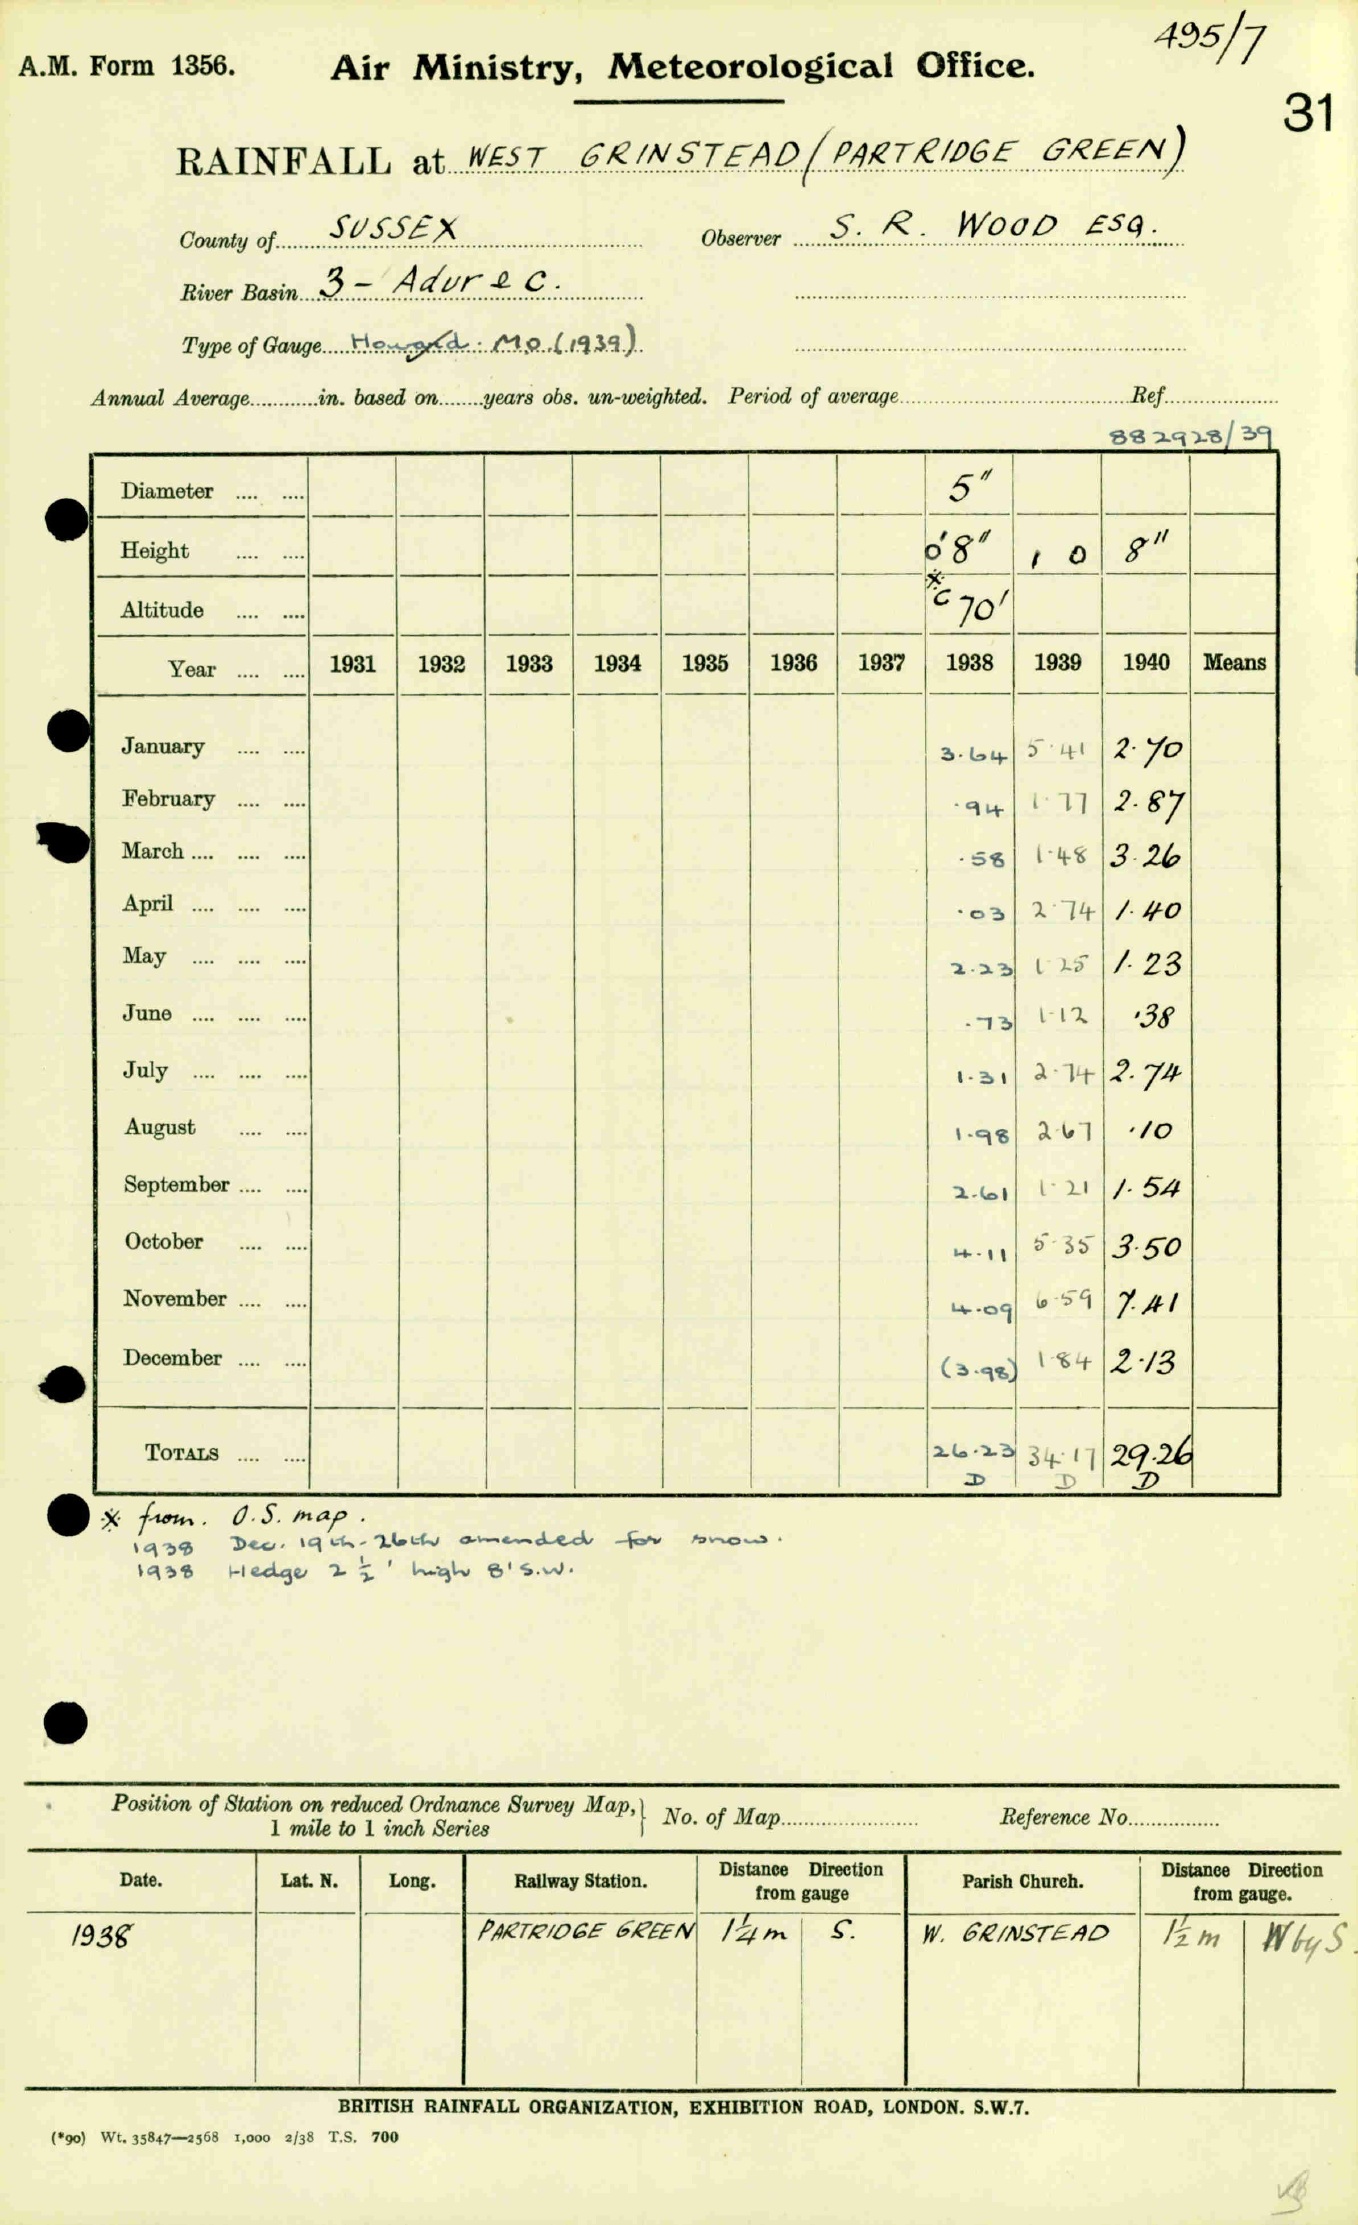 495/7
A.M. Form 1356. Air Ministry, Meteorological Office.
31
RAINFALL at WEST GRINSTEAD (PARTRIDGE GREEN)
County of SUSSEX Observer S. R. WOOD ESQ.
River Basin 3 - Adur & C.
Type of Gauge Howard. M.O. (1939)
Annual Average............in. based on........years obs. un-weighted. Period of average.................... Ref....................
882928/39
Diameter .... .... 5"
Height .... .... 0'8" 1 0 8"
Altitude .... .... * c 70'
Year .... .... 1931 1932 1933 1934 1935 1936 1937 1938 1939 1940 Means
January .... .... 3.64 5.41 2.70
February .... .... .94 1.77 2.87
March .... .... .... .58 1.48 3.26
April .... .... .... .03 2.74 1.40
May .... .... .... 2.23 1.25 1.23
June .... .... .... .73 1.12 .38
July .... .... .... 1.31 2.74 2.74
August .... .... 1.98 2.67 .10
September .... .... 2.61 1.21 1.54
October .... .... 4.11 5.35 3.50
November .... .... 4.09 6.59 7.41
December .... .... (3.98) 1.84 2.13
TOTALS .... .... 26.23 34.17 29.26
D D D
* from. O.S. map.
1938 Dec. 19th-26th amended for snow.
1938 Hedge 2 1/2' high 8' S.W.
Position of Station on reduced Ordnance Survey Map, } No. of Map........................ Reference No................
1 mile to 1 inch Series
Date. Lat. N. Long. Railway Station. Distance Direction from gauge Parish Church. Distance Direction from gauge.
1938 PARTRIDGE GREEN 1 1/4 m S. W. GRINSTEAD 1 1/2 m W by S.
BRITISH RAINFALL ORGANIZATION, EXHIBITION ROAD, LONDON. S.W.7.
(*90) Wt. 35847—2568 1,000 2/38 T.S. 700